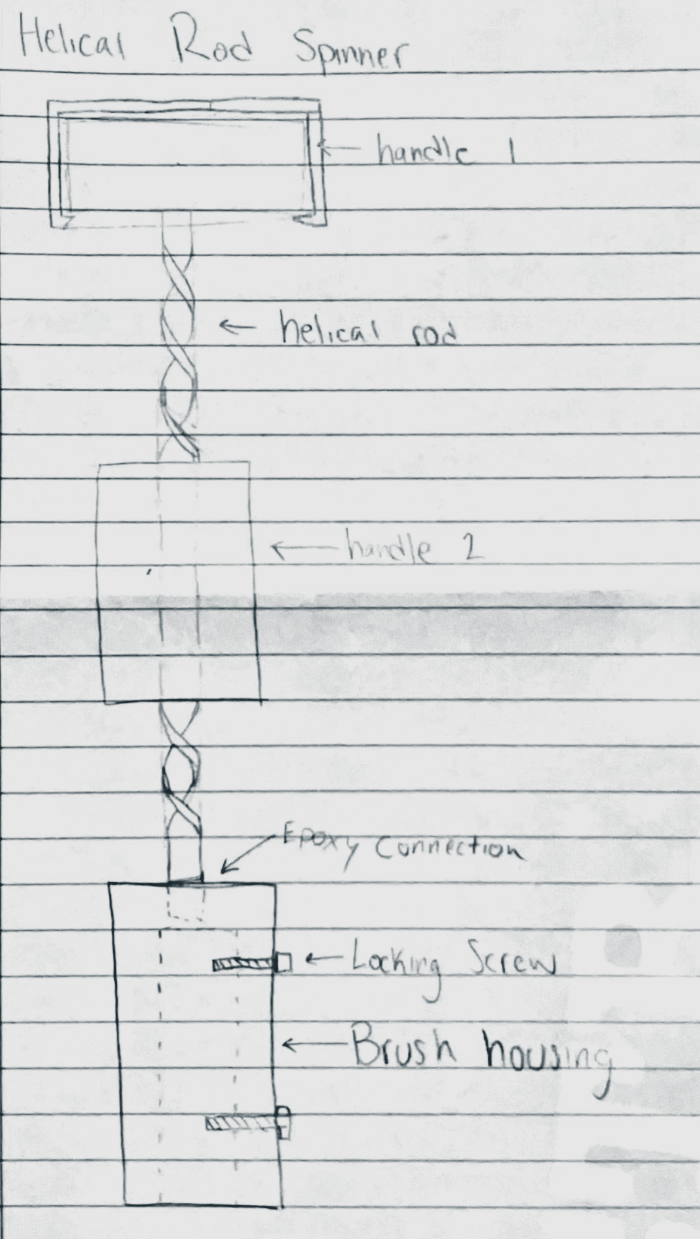 Helical Rod Spinner
handle 1
helical rod
handle 2
Epoxy connection
Locking Screw
Brush housing